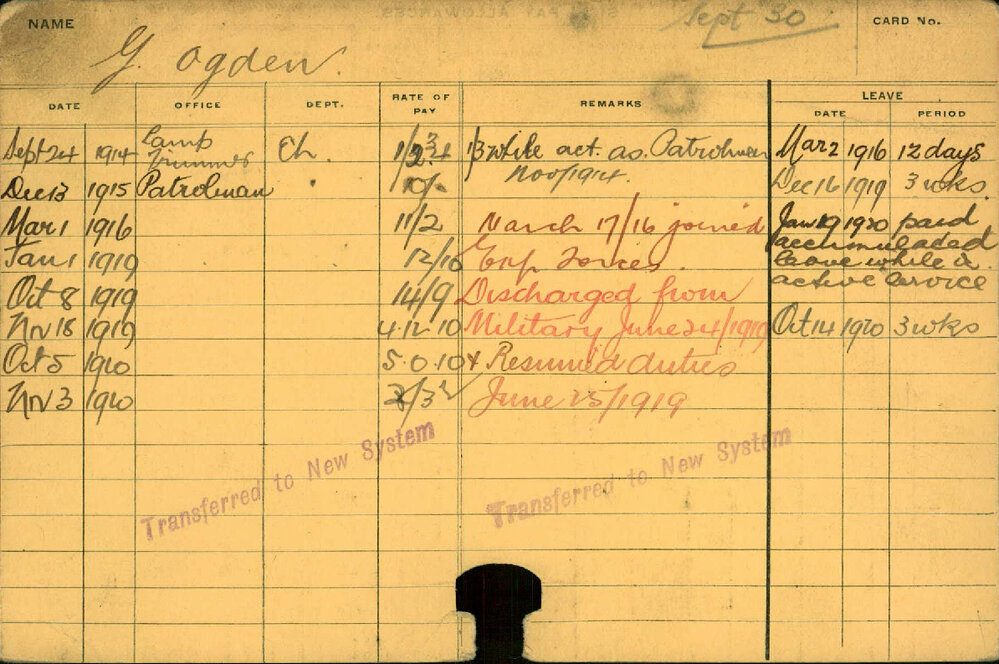 NAME
Sept 30
CARD No.
G. Ogden.
DATE OFFICE DEPT. RATE OF PAY REMARKS LEAVE
DATE PERIOD
Sept 24 1914 Lamp Trimmer Ch. 1/3 while act. as. Patrolman Mar 2 1916 12 days
Nov/1914.
Dec 13 1915 Patrolman Dec 16 1919 3 wks.
Mar 1 1916 11/2 March 17/16 joined Jan 19 1920 paid
accumulated
Jan 1 1919 12/10 Exp Forces. leave while on
active service
Oct 8 1919 14/9 Discharged from
Nov 18 1919 4.12.10 Military June 24/1919 Oct 14 1920 3 wks
Oct 5 1920 5.0.10 & Resumed duties
Nov 3 1920 June 25/1919
Transferred to New System
Transferred to New System